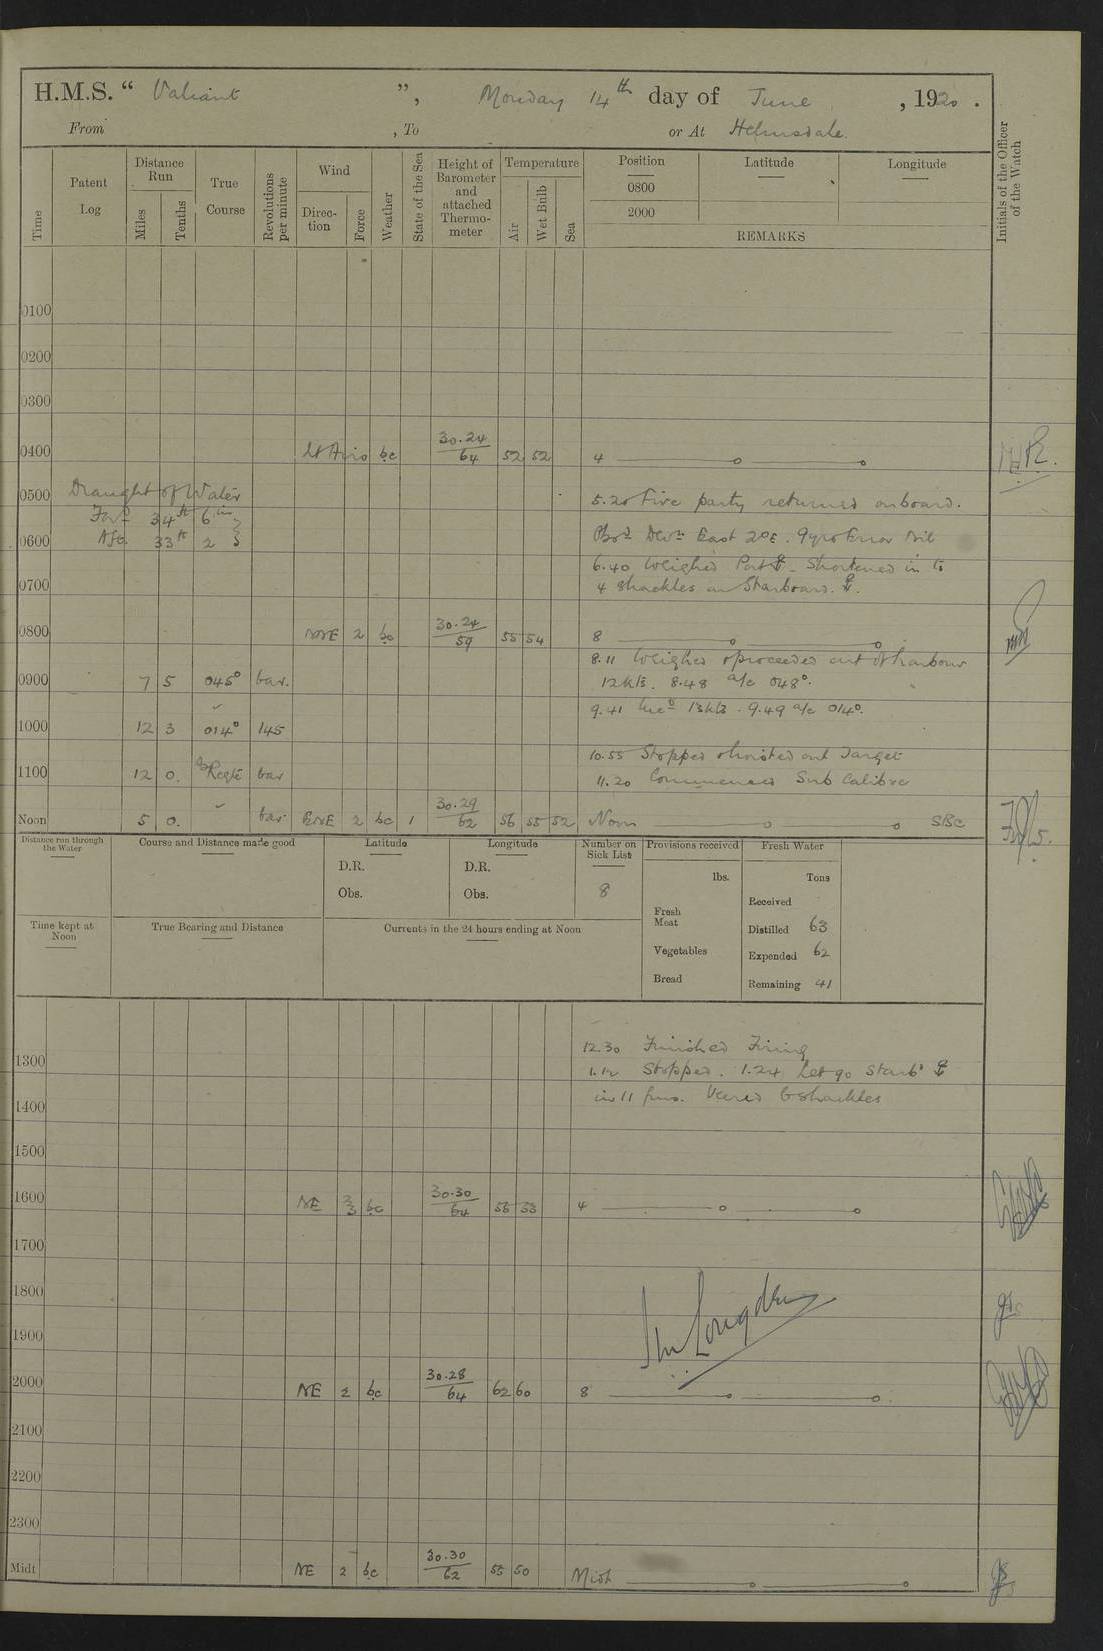 H.M.S. " Valiant ", Monday 14th day of June, 1920.
From , To or At Helmsdale.
Time
Patent Log
Distance Run
Miles
Tenths
True Course
Revolutions per minute
Wind
Direction
Force
Weather
State of the Sea
Height of Barometer and attached Thermometer
Temperature
Air
Wet Bulb
Sea
Position
0800
2000
Latitude
Longitude
REMARKS
Initials of the Officer of the Watch
0100
0200
0300
0400 Lt Airs bc 30.24/64 52 52 4
0500 Draught of Water 5.20 Fire party returned onboard.
Ford 34ft 6in
0600 Aft. 33ft 2 Devn East 2°E. Gyro Error Nil
6.40 Weighed Port ⚓. Shortened in to
0700 4 shackles on Starboard ⚓.
0800 NNE 2 bc 30.24/59 55 54 8
8.11 Weighed & proceeded out of harbour
0900 7 5 045° var. 12 kts. 8.48 a/c 048°.
9.41 Incd 13 kts. 9.49 a/c 014°.
1000 12 3 014° 145
10.55 Stopped & hoisted out Target
1100 12 0. as Reqte var 11.20 Commenced Sub Calibre
Noon 5 0. var ENE 2 bc 1 30.29/62 56 55 52 Noon SBC
Distance run through the Water
Course and Distance made good
Latitude
D.R.
Obs.
Longitude
D.R.
Obs.
Number on Sick List
8
Provisions received
lbs.
Fresh Meat
Vegetables
Bread
Fresh Water
Tons
Received
Distilled 63
Expended 62
Remaining 41
Time kept at Noon
True Bearing and Distance
Currents in the 24 hours ending at Noon
12.30 Finished Firing
1300 1.12 Stopped. 1.24 Let go Starbd ⚓
1400 in 11 fms. Veered 6 shackles
1500
1600 NE 3 bc 30.30/64 4
1700
1800
1900
2000 NE 2 bc 30.28/64 62 60 8
2100
2200
2300
Midt NE 2 bc 30.30/62 55 50 Midt